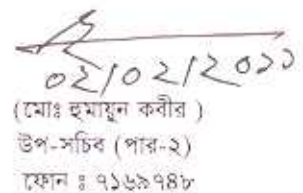 ০২/০২/২০১১
(মোঃ হুমায়ুন কবীর )
উপ-সচিব (পার-২)
ফোন ঃ ৭১৬৯৭৪৮